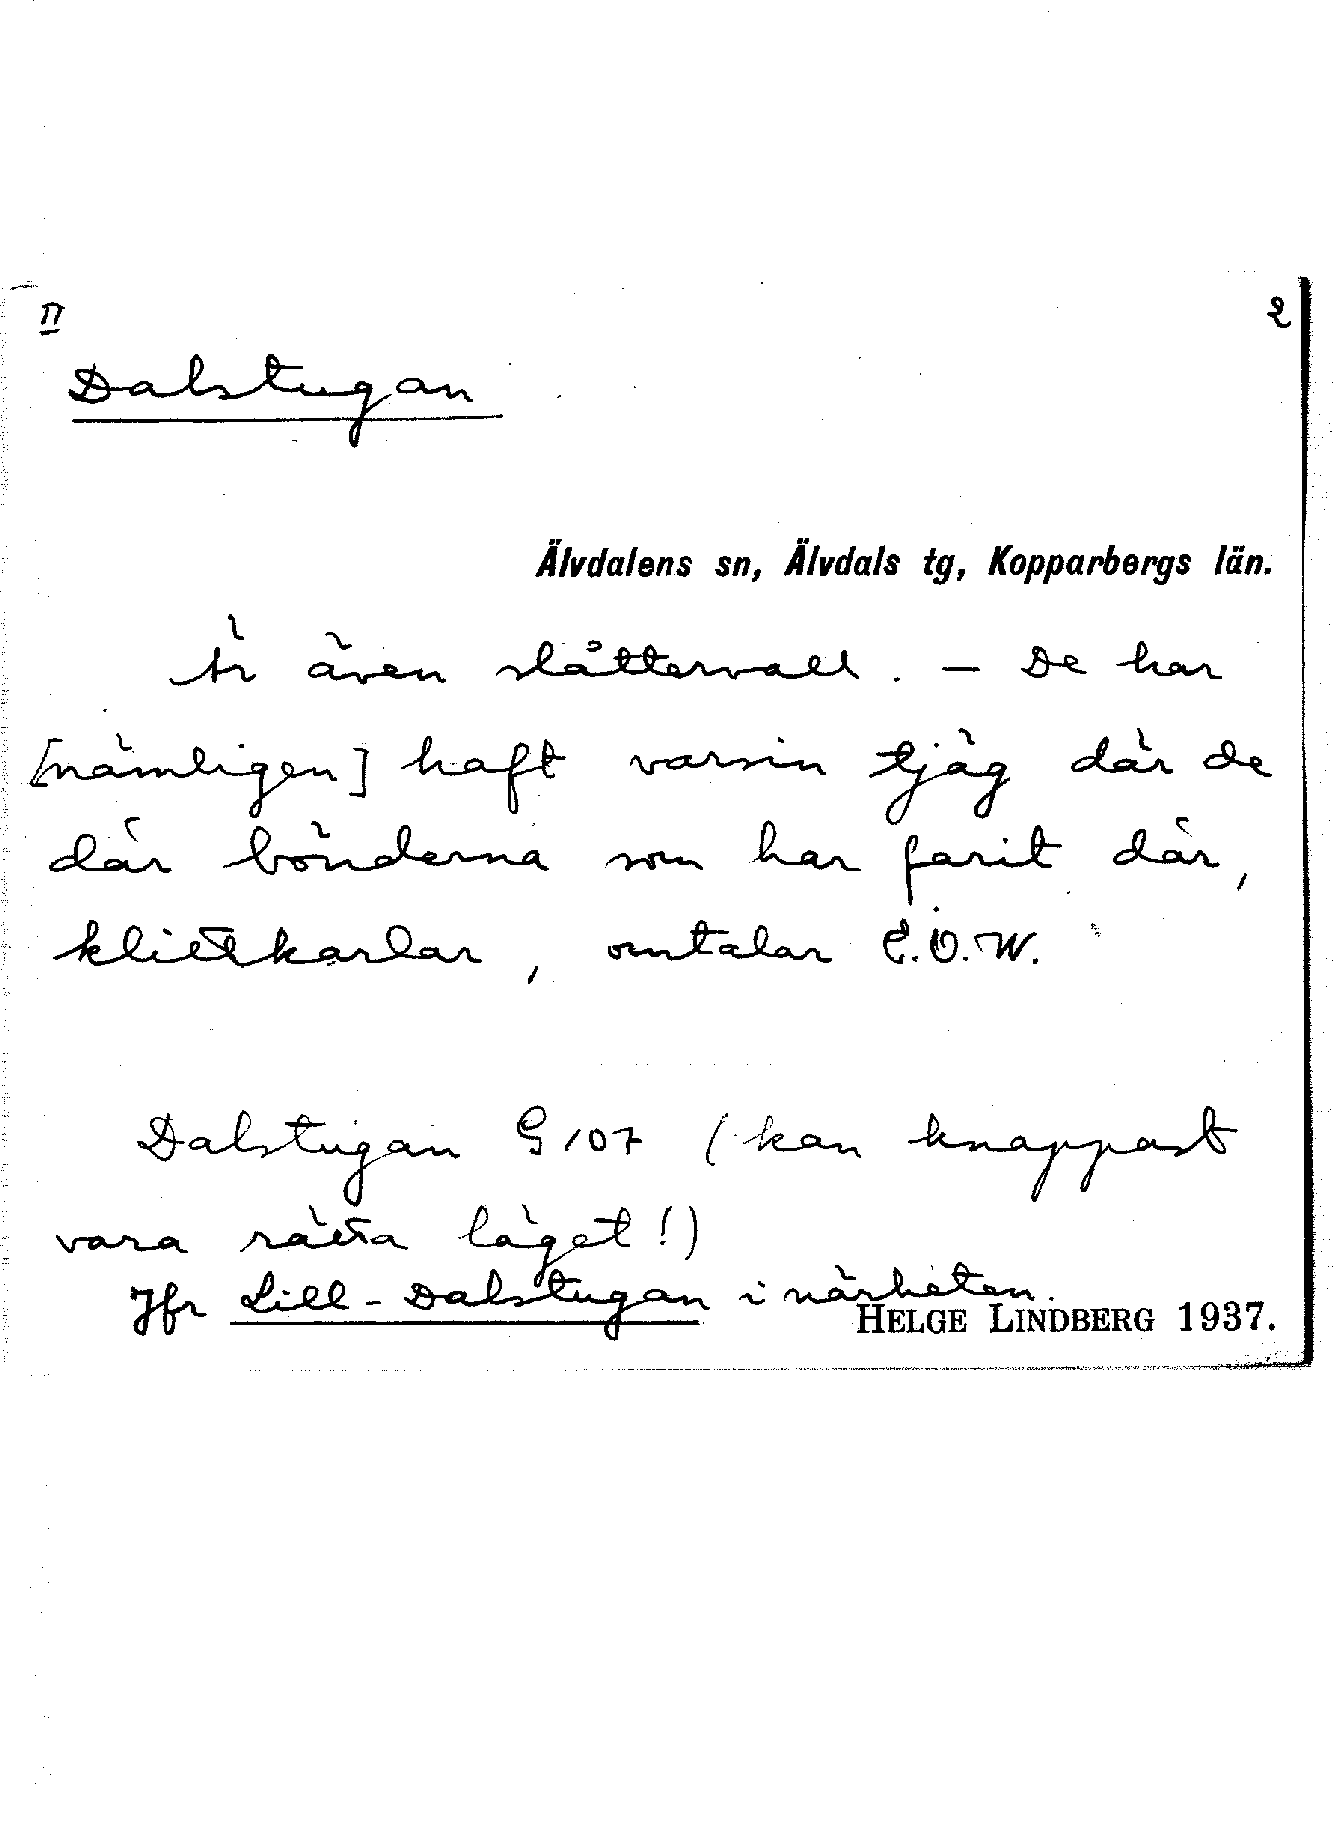 II 2
Dalstugan
Älvdalens sn, Älvdals tg, Kopparbergs län.
Är även slåttervall. – De har
[nämligen] haft varsin tjäg där de
där bönderna som har farit där,
klittkarlar, omtalar E.O.W.
Dalstugan G 107 (kan knappast
vara rätta läget!)
Jfr Lill-Dalstugan i närheten.
HELGE LINDBERG 1937.